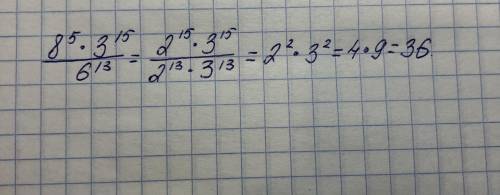 8⁵·3¹⁵/6¹³ = 2¹⁵·3¹⁵/2¹³·3¹³ = 2²·3² = 4·9 = 36